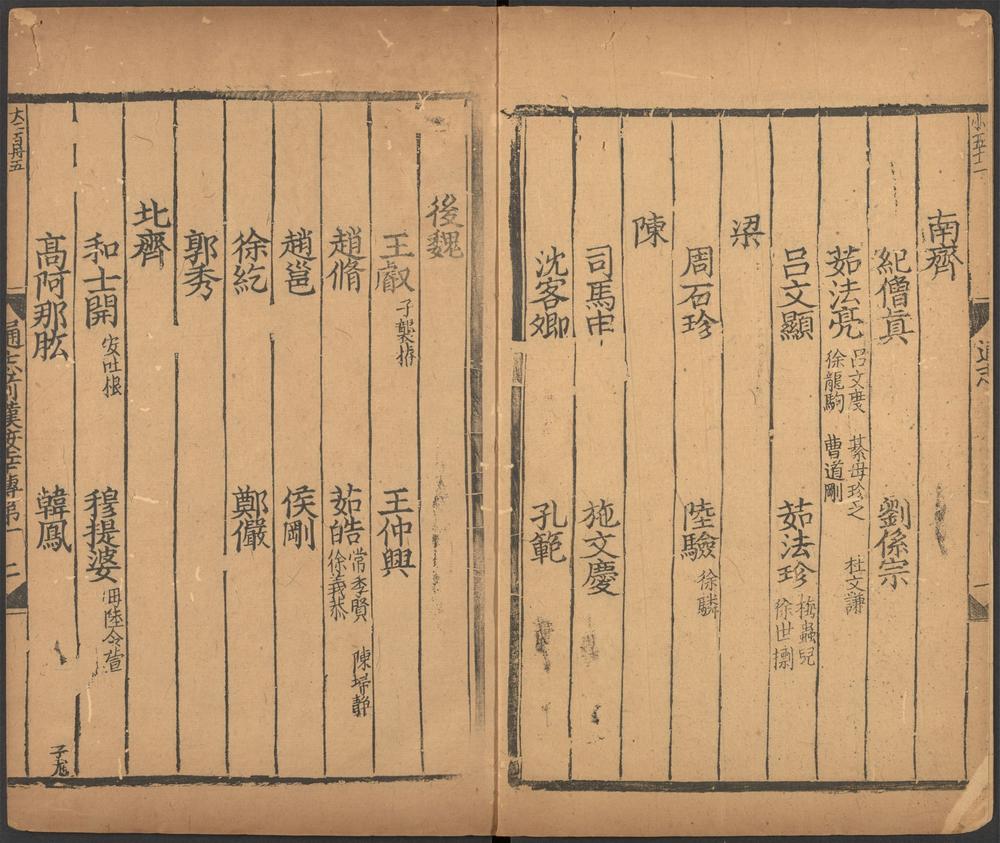 小五十一
南齊
紀僧眞　劉係宗
茹法亮　呂文度　綦母珍之　杜文謙
徐龍駒　曹道剛
呂文顯　茹法珍　梅蟲兒
徐世𢷋
梁
周石珍　陸驗　徐驎
陳
司馬申　施文慶
沈客卿　孔範
後魏
王叡　子襲椿　王仲興
趙脩　茹皓　常季賢　陳埽静
徐義恭
趙邕　侯剛
徐紇　鄭儼
郭秀
北齊
和士開　安吐根　穆提婆　母陸令萱
高阿那肱　韓鳳
大二百卅五
通志前漢佞幸傳第一　二
子尨